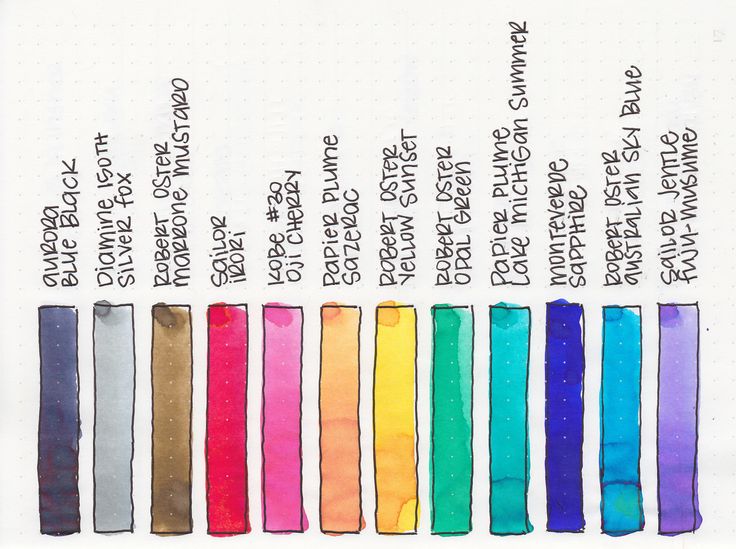 aurora
Blue Black
Diamine 150th
Silver Fox
Robert Oster
Marrone Mustard
Sailor
Irori
Kobe #30
Oji Cherry
Papier Plume
Sazerac
Robert Oster
Yellow Sunset
Robert Oster
Opal Green
Papier Plume
Lake Michigan Summer
Monteverde
Sapphire
Robert Oster
Australian Sky Blue
Sailor Jentle
Fuji-Musume